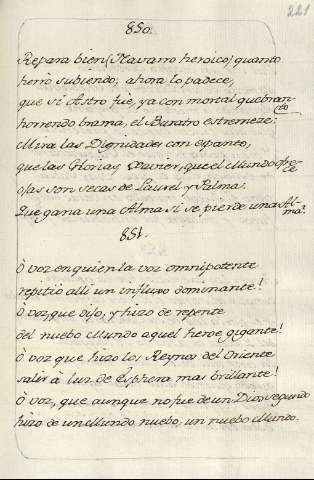 221
850.
Repara bien (Navarro heroico) quanto
hirio subiendo; ahora lo padece,
que si Astro fue, ya con mortal quebranto
horrendo brama, el Baratro estremeze:
Mira las Dignidades con espanto,
que las Glorias Xavier, que el Mundo ofrece
ojas son secas de Laurel y Palma.
Que gana una Alma si se pierde una Alma?
851.
Ò voz en quien la voz omnipotente
repitiò alli un influxo dominante!
Ò voz, que dijo, y hizo de repente
del nuebo Mundo aquel heroe gigante!
Ò voz que hizo los Reynos del Oriente
salir à luz de Esphera mas brillante!
Ò voz, que aunque no fue de un Dios segundo
hizo de un Mundo nuebo, un nuebo Mundo.